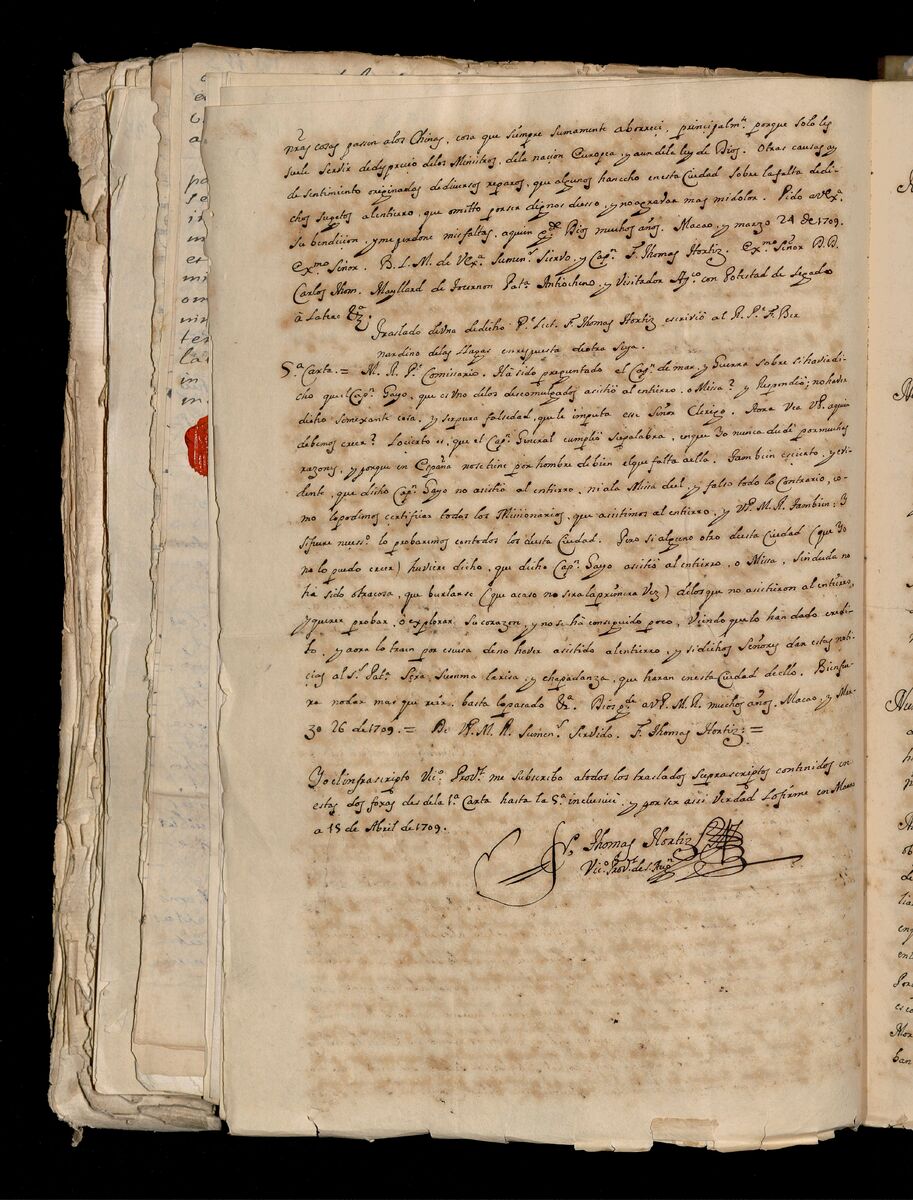 nr̃as cosas passen alos Chinas, cosa que siempre sumamente aborreci, principalmte. porque solo les
suele servir dedesprecio delos Ministros, dela nacion Europea, y aun dela ley de Dios. Otras causas ay
de sentimiento originadas dediversos reparos, que algunos hanecho enesta Ciudad sobre lafalta dedi-
chos sugetos alentierro, que omitto porser dignos desso, y no agravar mas midolor. Pido aVExª.
Su bendicion, yme perdone misfaltas, aquien gde. Dios muchos años. Macao, y marzo 24 de 1709.
Exmo. Señor. B. L. M. de VExª. Sumenr. Siervo, y Capn. F. Thomas Hortiz. Exmo. Señr. D. D.
Carlos Thom. Mayllard de Tournon Patª. Antiocheno, y Visitador App.co con Potestad de Legado
à Latere &ª.
Traslado deVna dedicho Pe. Lect. F. Thomas Hortiz escriviò al R. Pe. F. Ber
nardino delas Llagas enrespuesta deotra Suya.
5.ª Carta. = M. R. Pe. Comissario. Ha sido preguntado el Capn. de mar, y Guerra sobre sihaviedi-
cho que el Capn. Gayo, que es Vno delos descomulgados asistiò al entierro, o Missa? y Respondiò; no haver
dicho semexante cosa, y serpura falsedad, que le imputa ese Señor Clerigo. Aora Vea VP. aquien
debemos creer? Locierto es, que el Capn. General cumpliò supalabra, enque Yo nunca dudè pormuchas
razones, y porque en España nosetiene por hombre debien elque falta aella. Tambien escierto, y evi-
dente, que dicho Capn. Gayo no asistiò al entierro, ni ala Missa del, y falso todo lo Contrario, co-
mo lopodemos certificar todos los Missionarios, que asistimos al entierro, y VP. M. R. tambien: Y
sifuere necesso. lo probaremos contodos los desta Ciudad. Pero si alguno otro desta Ciudad (que Yo
no lo puedo creer) huviere dicho, que dicho Capn. Gayo asistiò al entierro, o Missa, sinduda no
ha sido otracosa, que burlarse (que acaso no sera laprimera Vez) delos que no asistieron al entierro,
y querer probar, o explorar su corazon, y no se hà conseguido poco, Viendo que lo han dado credi-
to, y aora lo traen por escusa deno haver asistido alentierro, y sidichos Señores dan estas noti-
cias al Sr. Patª. Serà Summa larisa, y chapardanza, que haran enesta Ciudad dello. Bien fue-
ra nodar mas que reir, basta lopasado &ª. Dios gde. aVP. M. R. muchos años. Macao, y Mar-
zo 26 de 1709. = De VP. M. R. Sumenr. Servido. F. Thomas Hortiz. =
Yo el infrascripto Vicº. Provl. me subscribo atodos los traslados suprascriptos contenidos en
estas dos foxas desde la 1ª Carta hasta la 5ª inclusive, y por ser assi Verdad Lofirme en Macao
a 15 de Abril de 1709.
Fr. Thomas Hortiz
Vicº. Provl. de S. Augn.